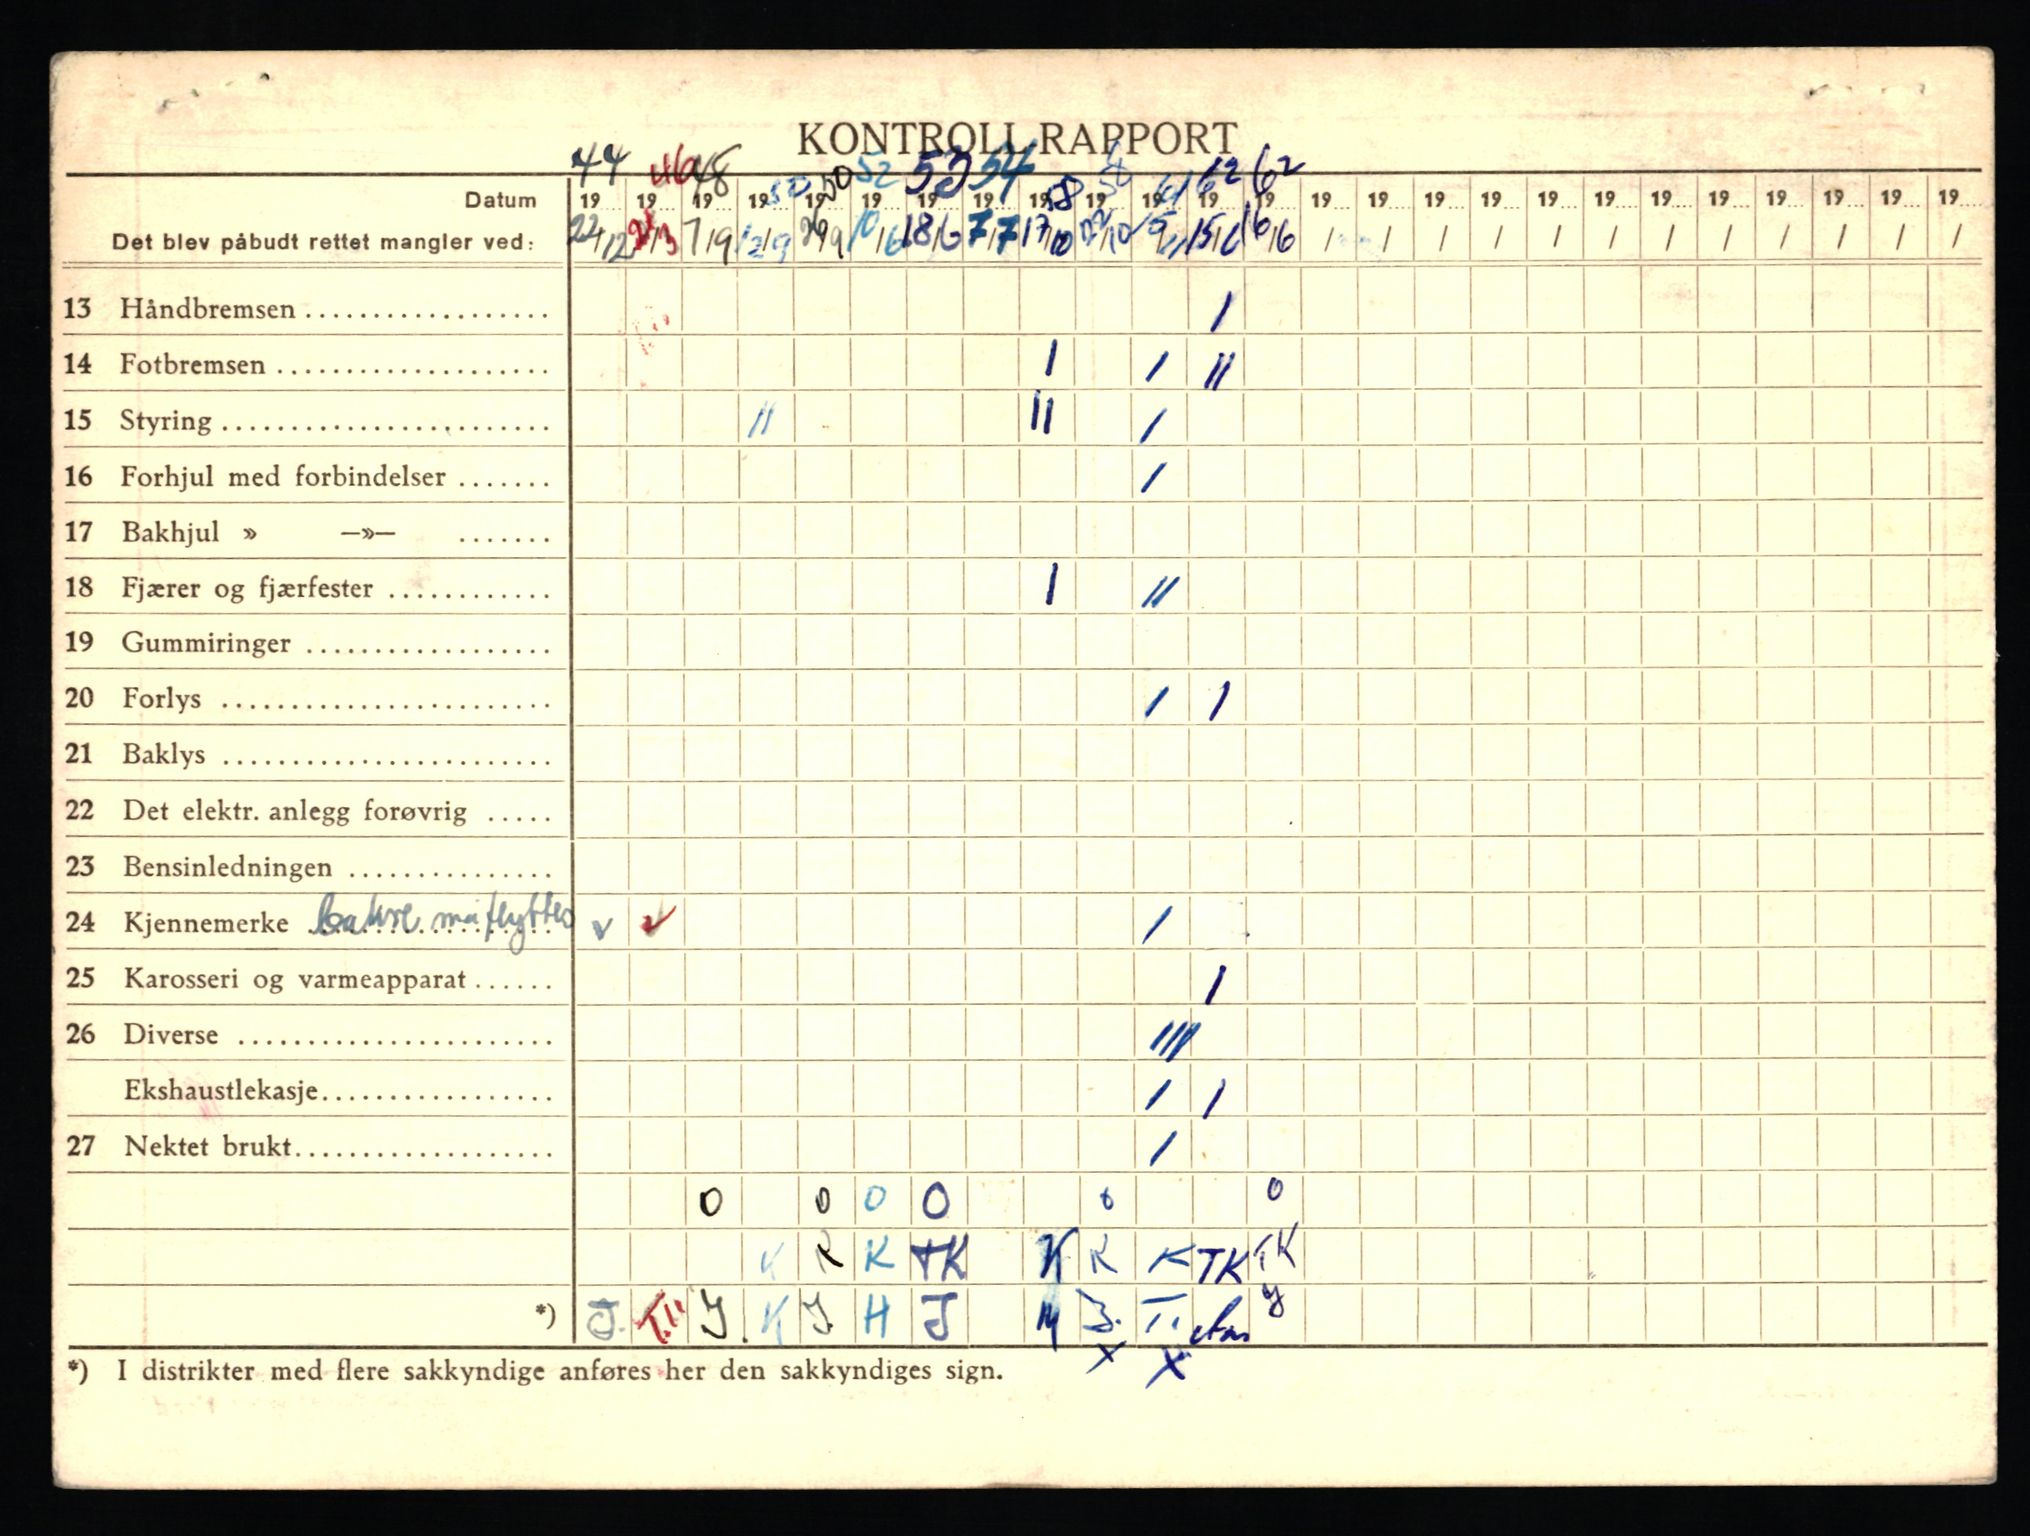 KONTROLL RAPPORT
44 46 48 50 50 52 53 54 58 58 61 62 62
Datum 19 19 19 19 19 19 19 19 19 19 19 19 19 19 19 19 19 19 19 19 19 19 19 19 19
Det blev påbudt rettet mangler ved: 22/12 21/3 7/9 12/9 26/9 10/6 18/6 7/7 17/10 /10 15/11 15/6 16/6 / / / / / / / / / / / /
13 Håndbremsen .................. /
14 Fotbremsen .................... / / //
15 Styring ........................ // // /
16 Forhjul med forbindelser ....... /
17 Bakhjul » —»— .......
18 Fjærer og fjærfester ............ / //
19 Gummiringer ..................
20 Forlys ........................ / /
21 Baklys ........................
22 Det elektr. anlegg forøvrig .....
23 Bensinledningen ...............
24 Kjennemerke bakre må flyttes v v /
25 Karosseri og varmeapparat ...... /
26 Diverse ....................... ////
Ekshaustlekasje................. / /
27 Nektet brukt................... /
0 0 0 0 0 0
K R K TK K K K TK TK
*) J. T.i. J. K J. H J M J. T.
x x
*) I distrikter med flere sakkyndige anføres her den sakkyndiges sign.